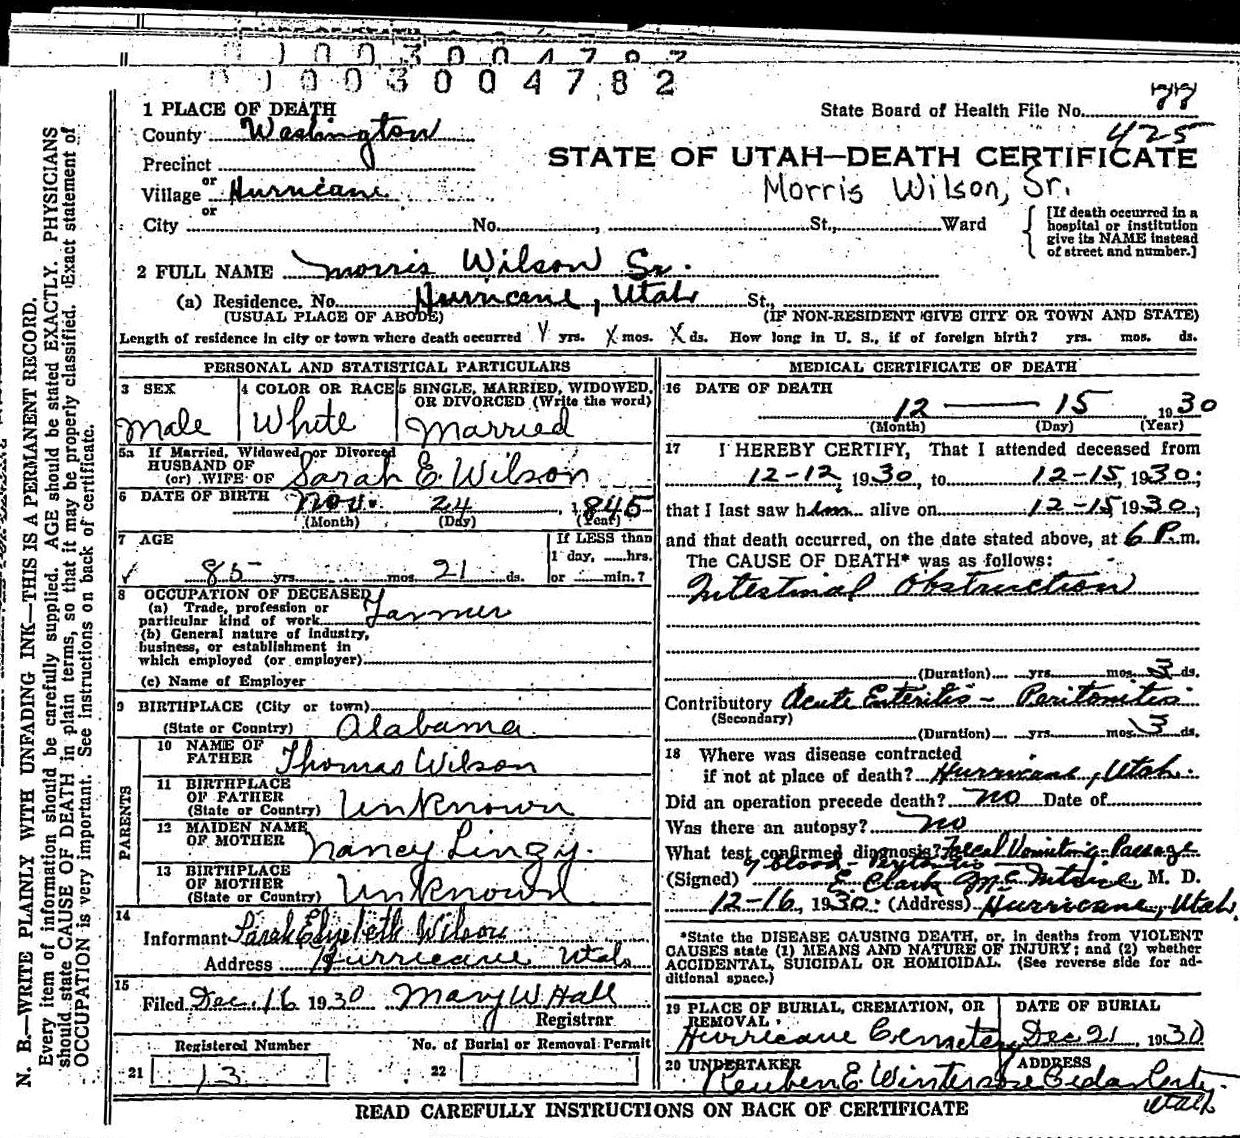 0 1 0 0 3 0 0 4 7 8 2
1 PLACE OF DEATH
State Board of Health File No. 77
County Washington
425
Precinct
STATE OF UTAH—DEATH CERTIFICATE
or
Village Hurricane
Morris Wilson, Sr.
or
City No. , St., Ward
[If death occurred in a
hospital or institution
give its NAME instead
of street and number.]
2 FULL NAME Morris Wilson Sr.
(a) Residence. No. Hurricane, Utah St.,
(USUAL PLACE OF ABODE) (IF NON-RESIDENT GIVE CITY OR TOWN AND STATE)
Length of residence in city or town where death occurred Y yrs. X mos. X ds. How long in U. S., if of foreign birth? yrs. mos. ds.
PERSONAL AND STATISTICAL PARTICULARS
3 SEX
Male
4 COLOR OR RACE
White
5 SINGLE, MARRIED, WIDOWED,
OR DIVORCED (Write the word)
Married
5a If Married, Widowed or Divorced
HUSBAND OF
(or) WIFE OF Sarah E. Wilson
6 DATE OF BIRTH Nov. 24, 1845
(Month) (Day) (Year)
7 AGE
85 yrs. mos. 21 ds.
If LESS than
1 day, hrs.
or min.?
8 OCCUPATION OF DECEASED
(a) Trade, profession or
particular kind of work Farmer
(b) General nature of industry,
business, or establishment in
which employed (or employer)
(c) Name of Employer
9 BIRTHPLACE (City or town)
(State or Country) Alabama
PARENTS
10 NAME OF
FATHER Thomas Wilson
11 BIRTHPLACE
OF FATHER
(State or Country) Unknown
12 MAIDEN NAME
OF MOTHER Nancy Linzy.
13 BIRTHPLACE
OF MOTHER
(State or Country) Unknown
14
Informant Sarah Elizabeth Wilson
Address Hurricane Utah
15
Filed Dec. 16 1930 Mary W. Hall
Registrar
Registered Number
No. of Burial or Removal Permit
21 13
22
MEDICAL CERTIFICATE OF DEATH
16 DATE OF DEATH
12 — 15, 1930
(Month) (Day) (Year)
17 I HEREBY CERTIFY, That I attended deceased from
12-12, 1930, to 12-15, 1930;
that I last saw him alive on 12-15 1930;
and that death occurred, on the date stated above, at 6 P.m.
The CAUSE OF DEATH* was as follows:
Intestinal Obstruction
(Duration) yrs. mos. 3 ds.
Contributory Acute Enteritis - Peritonitis
(Secondary)
(Duration) yrs. mos. 3 ds.
18 Where was disease contracted
if not at place of death? Hurricane, Utah.
Did an operation precede death? no Date of
Was there an autopsy? no
What test confirmed diagnosis? Faecal Vomiting. Passage
of blood - Peritonitis
(Signed) E. Clark McIntire, M. D.
12-16, 1930. (Address) Hurricane, Utah.
*State the DISEASE CAUSING DEATH, or, in deaths from VIOLENT
CAUSES state (1) MEANS AND NATURE OF INJURY; and (2) whether
ACCIDENTAL, SUICIDAL OR HOMICIDAL. (See reverse side for ad-
ditional space.)
19 PLACE OF BURIAL, CREMATION, OR
REMOVAL
Hurricane Cemetery
DATE OF BURIAL
Dec 21, 1930
20 UNDERTAKER
Reuben E. Winterose
ADDRESS
Cedar City.
Utah
READ CAREFULLY INSTRUCTIONS ON BACK OF CERTIFICATE
N. B.—WRITE PLAINLY WITH UNFADING INK—THIS IS A PERMANENT RECORD.
Every item of information should be carefully supplied. AGE should be stated EXACTLY. PHYSICIANS
should state CAUSE OF DEATH in plain terms, so that it may be properly classified. Exact statement of
OCCUPATION is very important. See instructions on back of certificate.